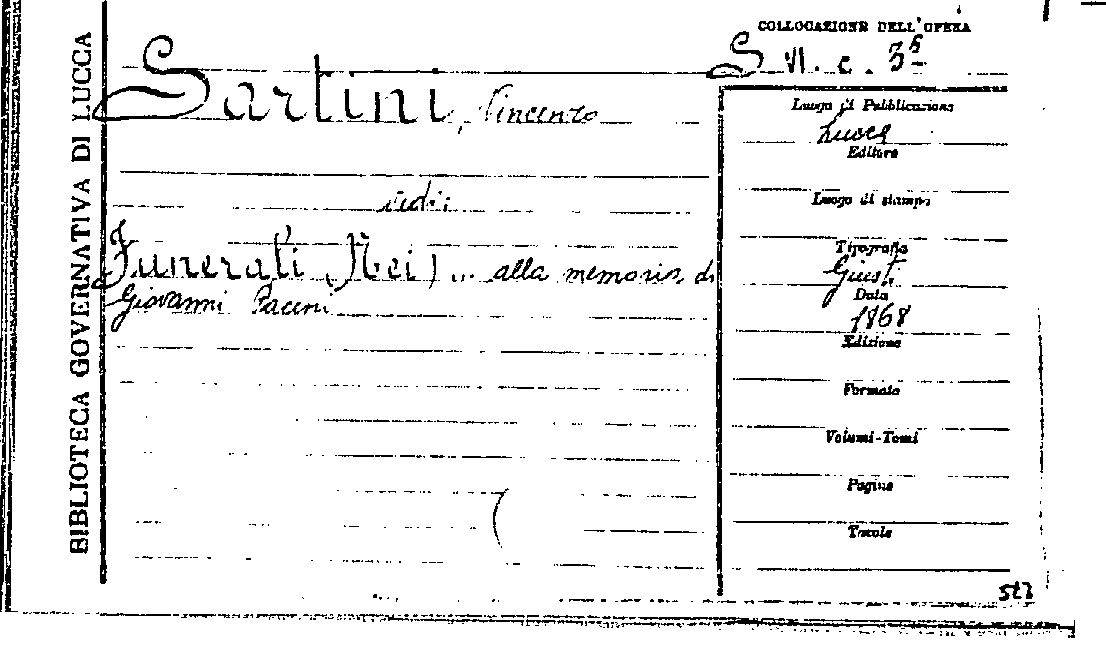 BIBLIOTECA GOVERNATIVA DI LUCCA
COLLOCAZIONE DELL'OPERA
Sartini, Vincenzo
vedi:
Funerali (Nei) ... alla memoria di
Giovanni Pacini
Luogo di Pubblicazione
Lucca
Editore
Luogo di stampa
Tipografia
Giusti
Data
1868
Edizione
Formato
Volumi-Tomi
Pagine
Tavole